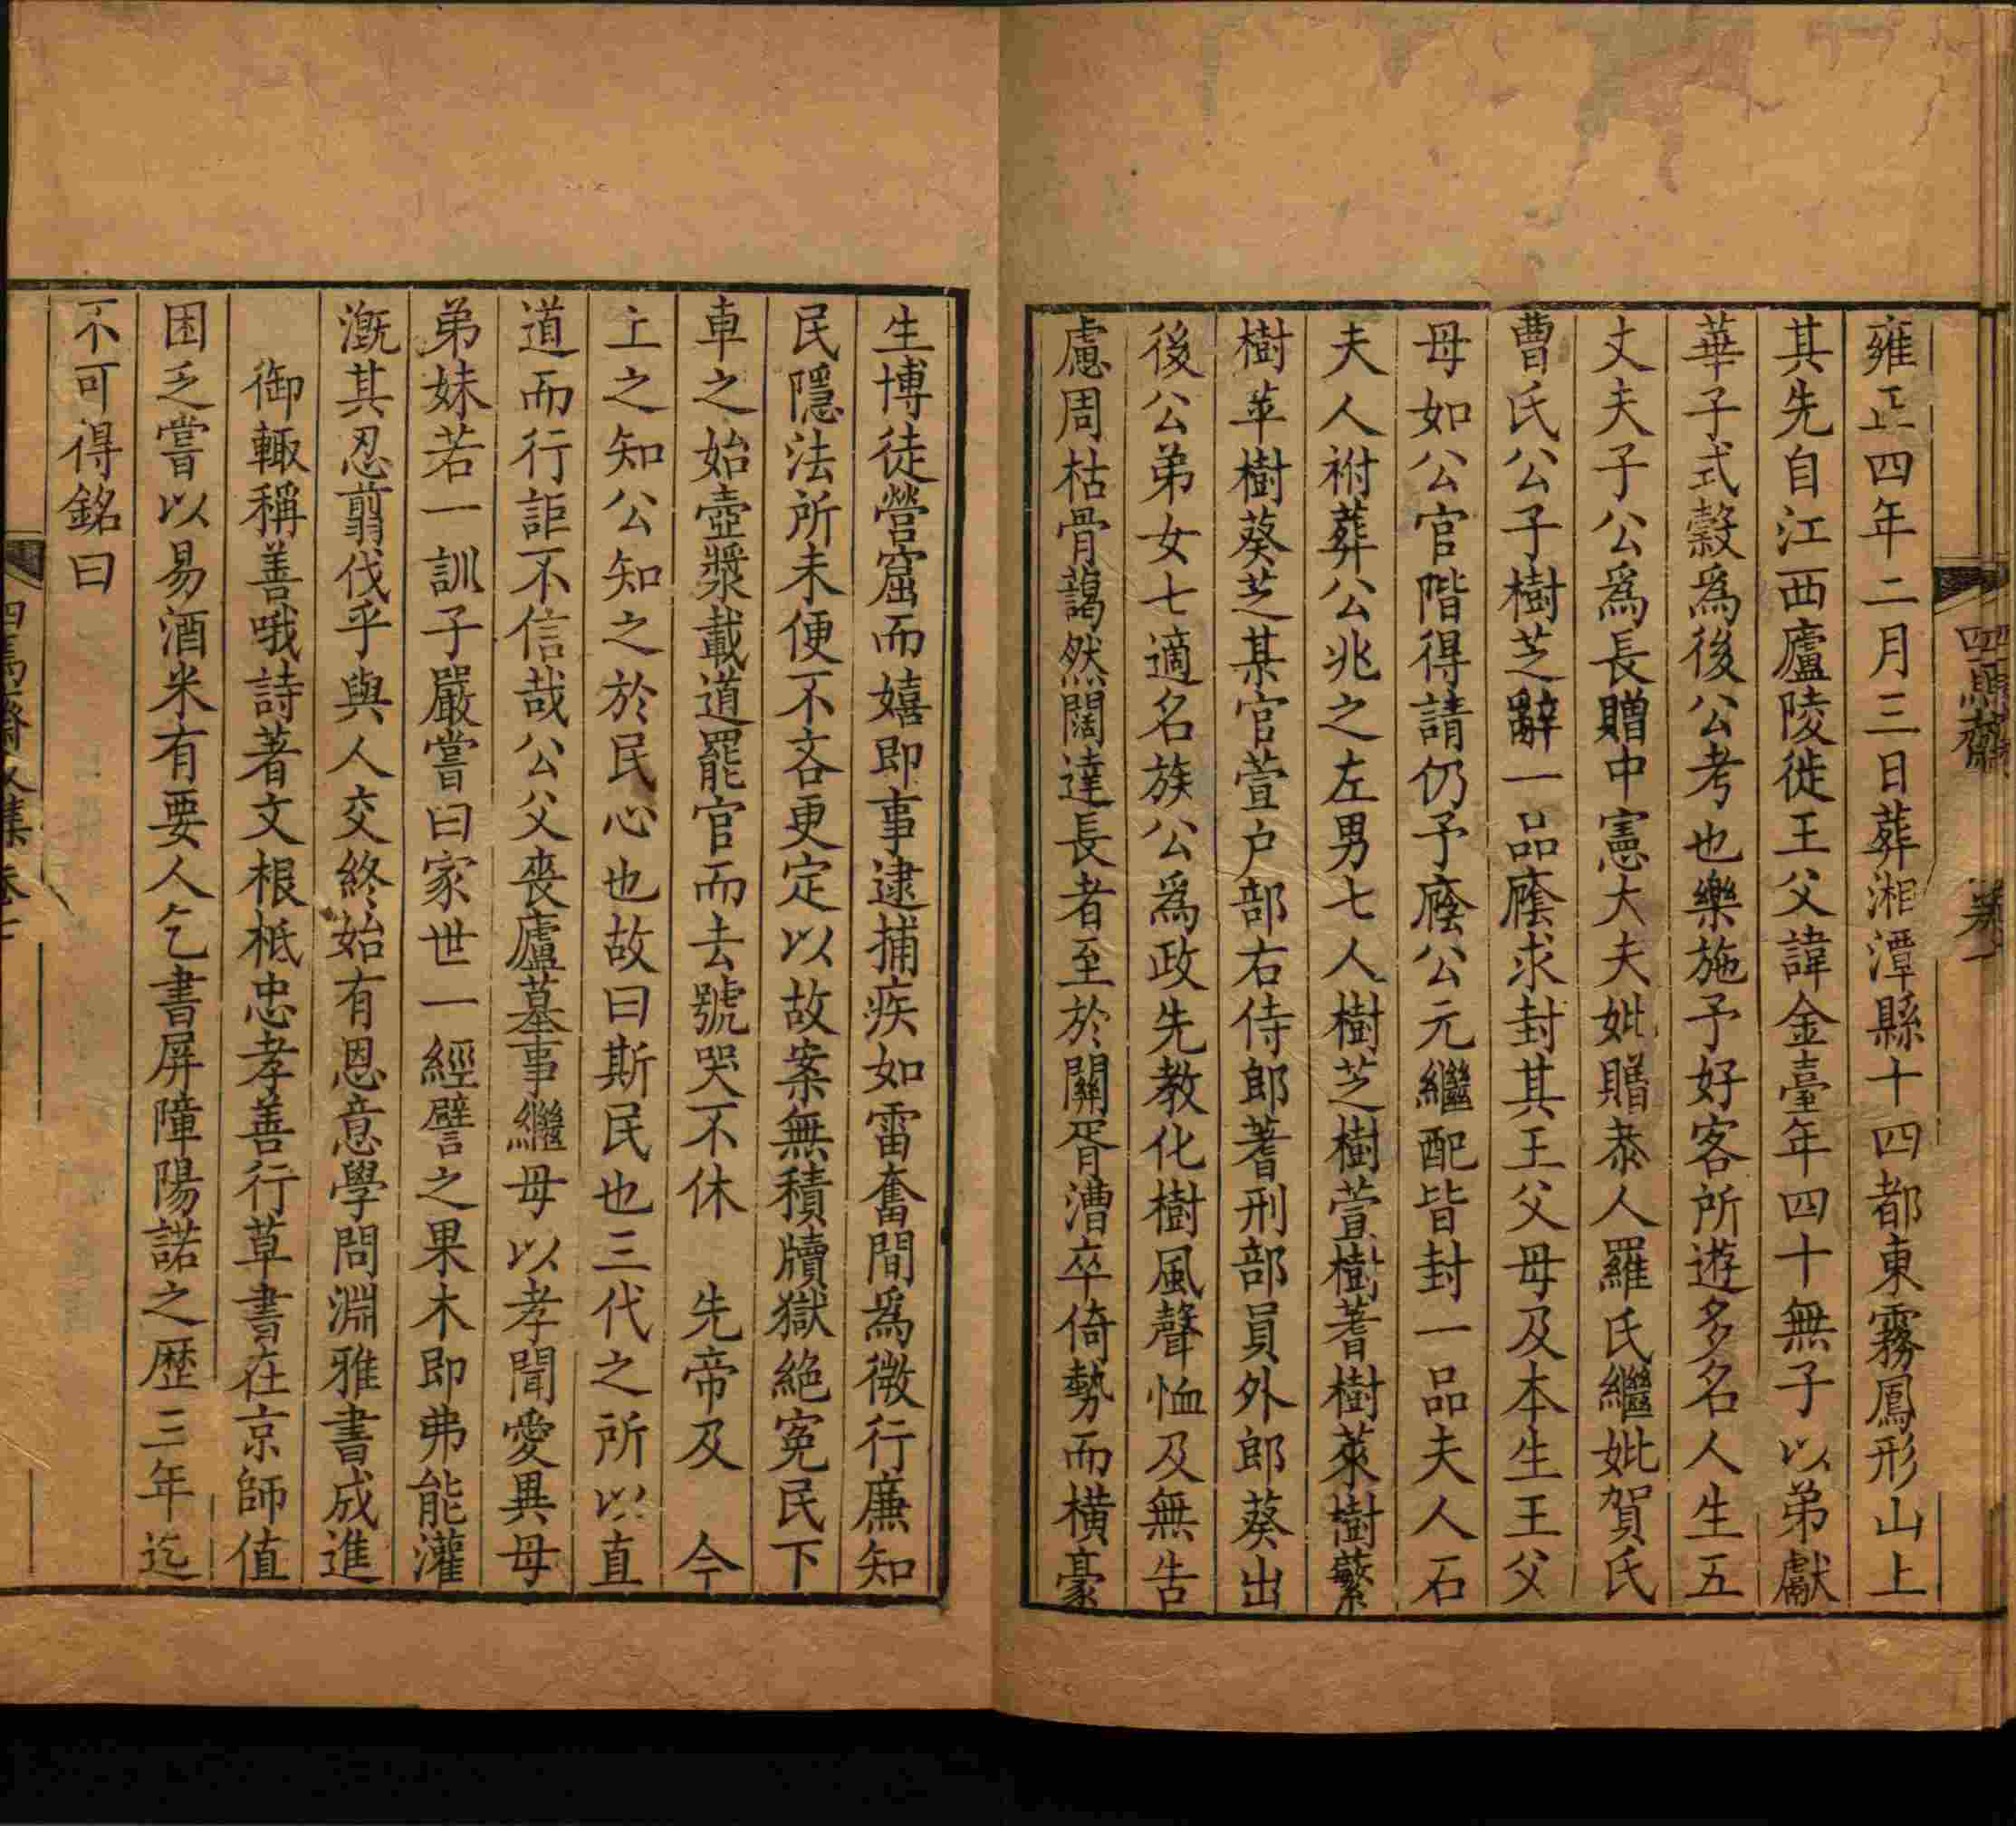 雍正四年二月三日葬湘潭縣十四都東霧鳳形山上
其先自江西廬陵徙王父諱金臺年四十無子以弟獻
華子式穀爲後公考也樂施予好客所遊多名人生五
丈夫子公爲長贈中憲大夫妣贈恭人羅氏繼妣賀氏
曹氏公子樹芝辭一品廕求封其王父母及本生王父
母如公官階得請仍予廕公元繼配皆封一品夫人石
夫人祔葬公兆之左男七人樹芝樹萱樹蓍樹萊樹蘩
樹苹樹葵芝某官萱户部右侍郎蓍刑部員外郎葵出
後公弟女七適名族公爲政先教化樹風聲恤及無告
慮周枯骨藹然闊達長者至於關胥漕卒倚勢而橫豪
生博徒營窟而嬉即事逮捕疾如雷奮間爲微行廉知
民隱法所未便不吝更定以故案無積牘獄絶冤民下
車之始壺漿載道罷官而去號哭不休 先帝及 今
上之知公知之於民心也故曰斯民也三代之所以直
道而行詎不信哉公父喪廬墓事繼母以孝聞愛異母
弟妹若一訓子嚴嘗曰家世一經譬之果木即弗能灌
漑其忍翦伐乎與人交終始有恩意學問淵雅書成進
御輙稱善哦詩著文根柢忠孝善行草書在京師值
困乏嘗以易酒米有要人乞書屏障陽諾之歴三年迄
不可得銘曰